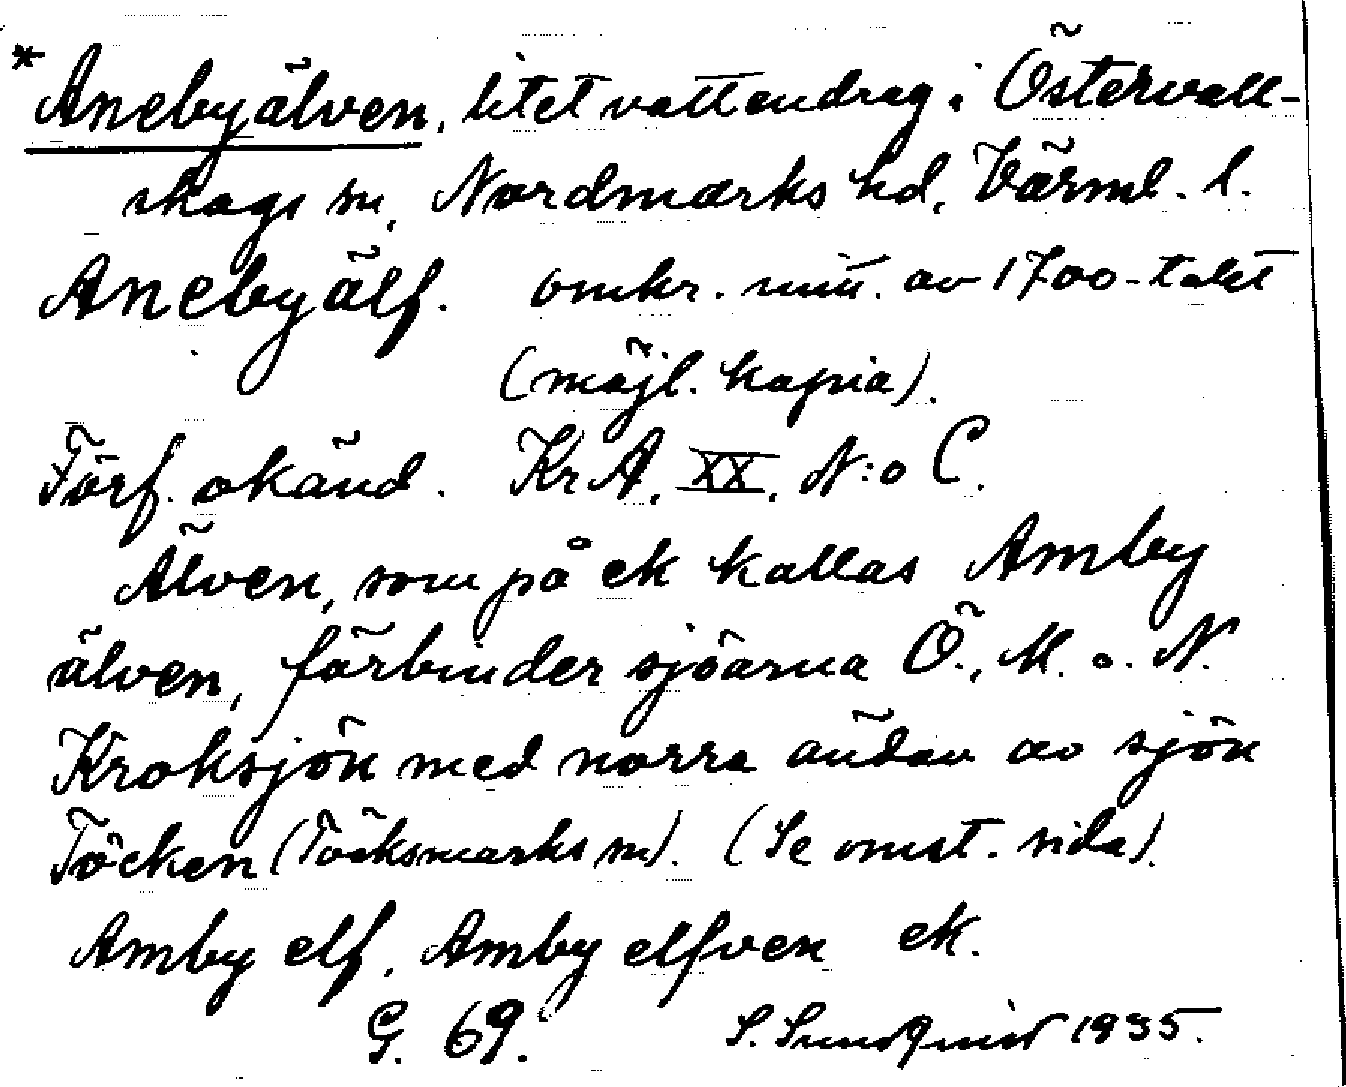 * Anebyälven, litet vattendrag i Östervall-
skogs sn, Nordmarks hd, Värml. l.
Anebyälf. omkr. mitt. av 1700-talet
(möjl. kopia).
Förf. okänd. KrA, XX, N:o C.
Älven, som på ek kallas Amby
älven, förbinder sjöarna Ö., M. o. N.
Kroksjön med norra ändan av sjön
Töcken (Töcksmarks sn). (Se omst. sida).
Amby elf, Amby elfven ek.
G. 69. S. Sundquist 1935.